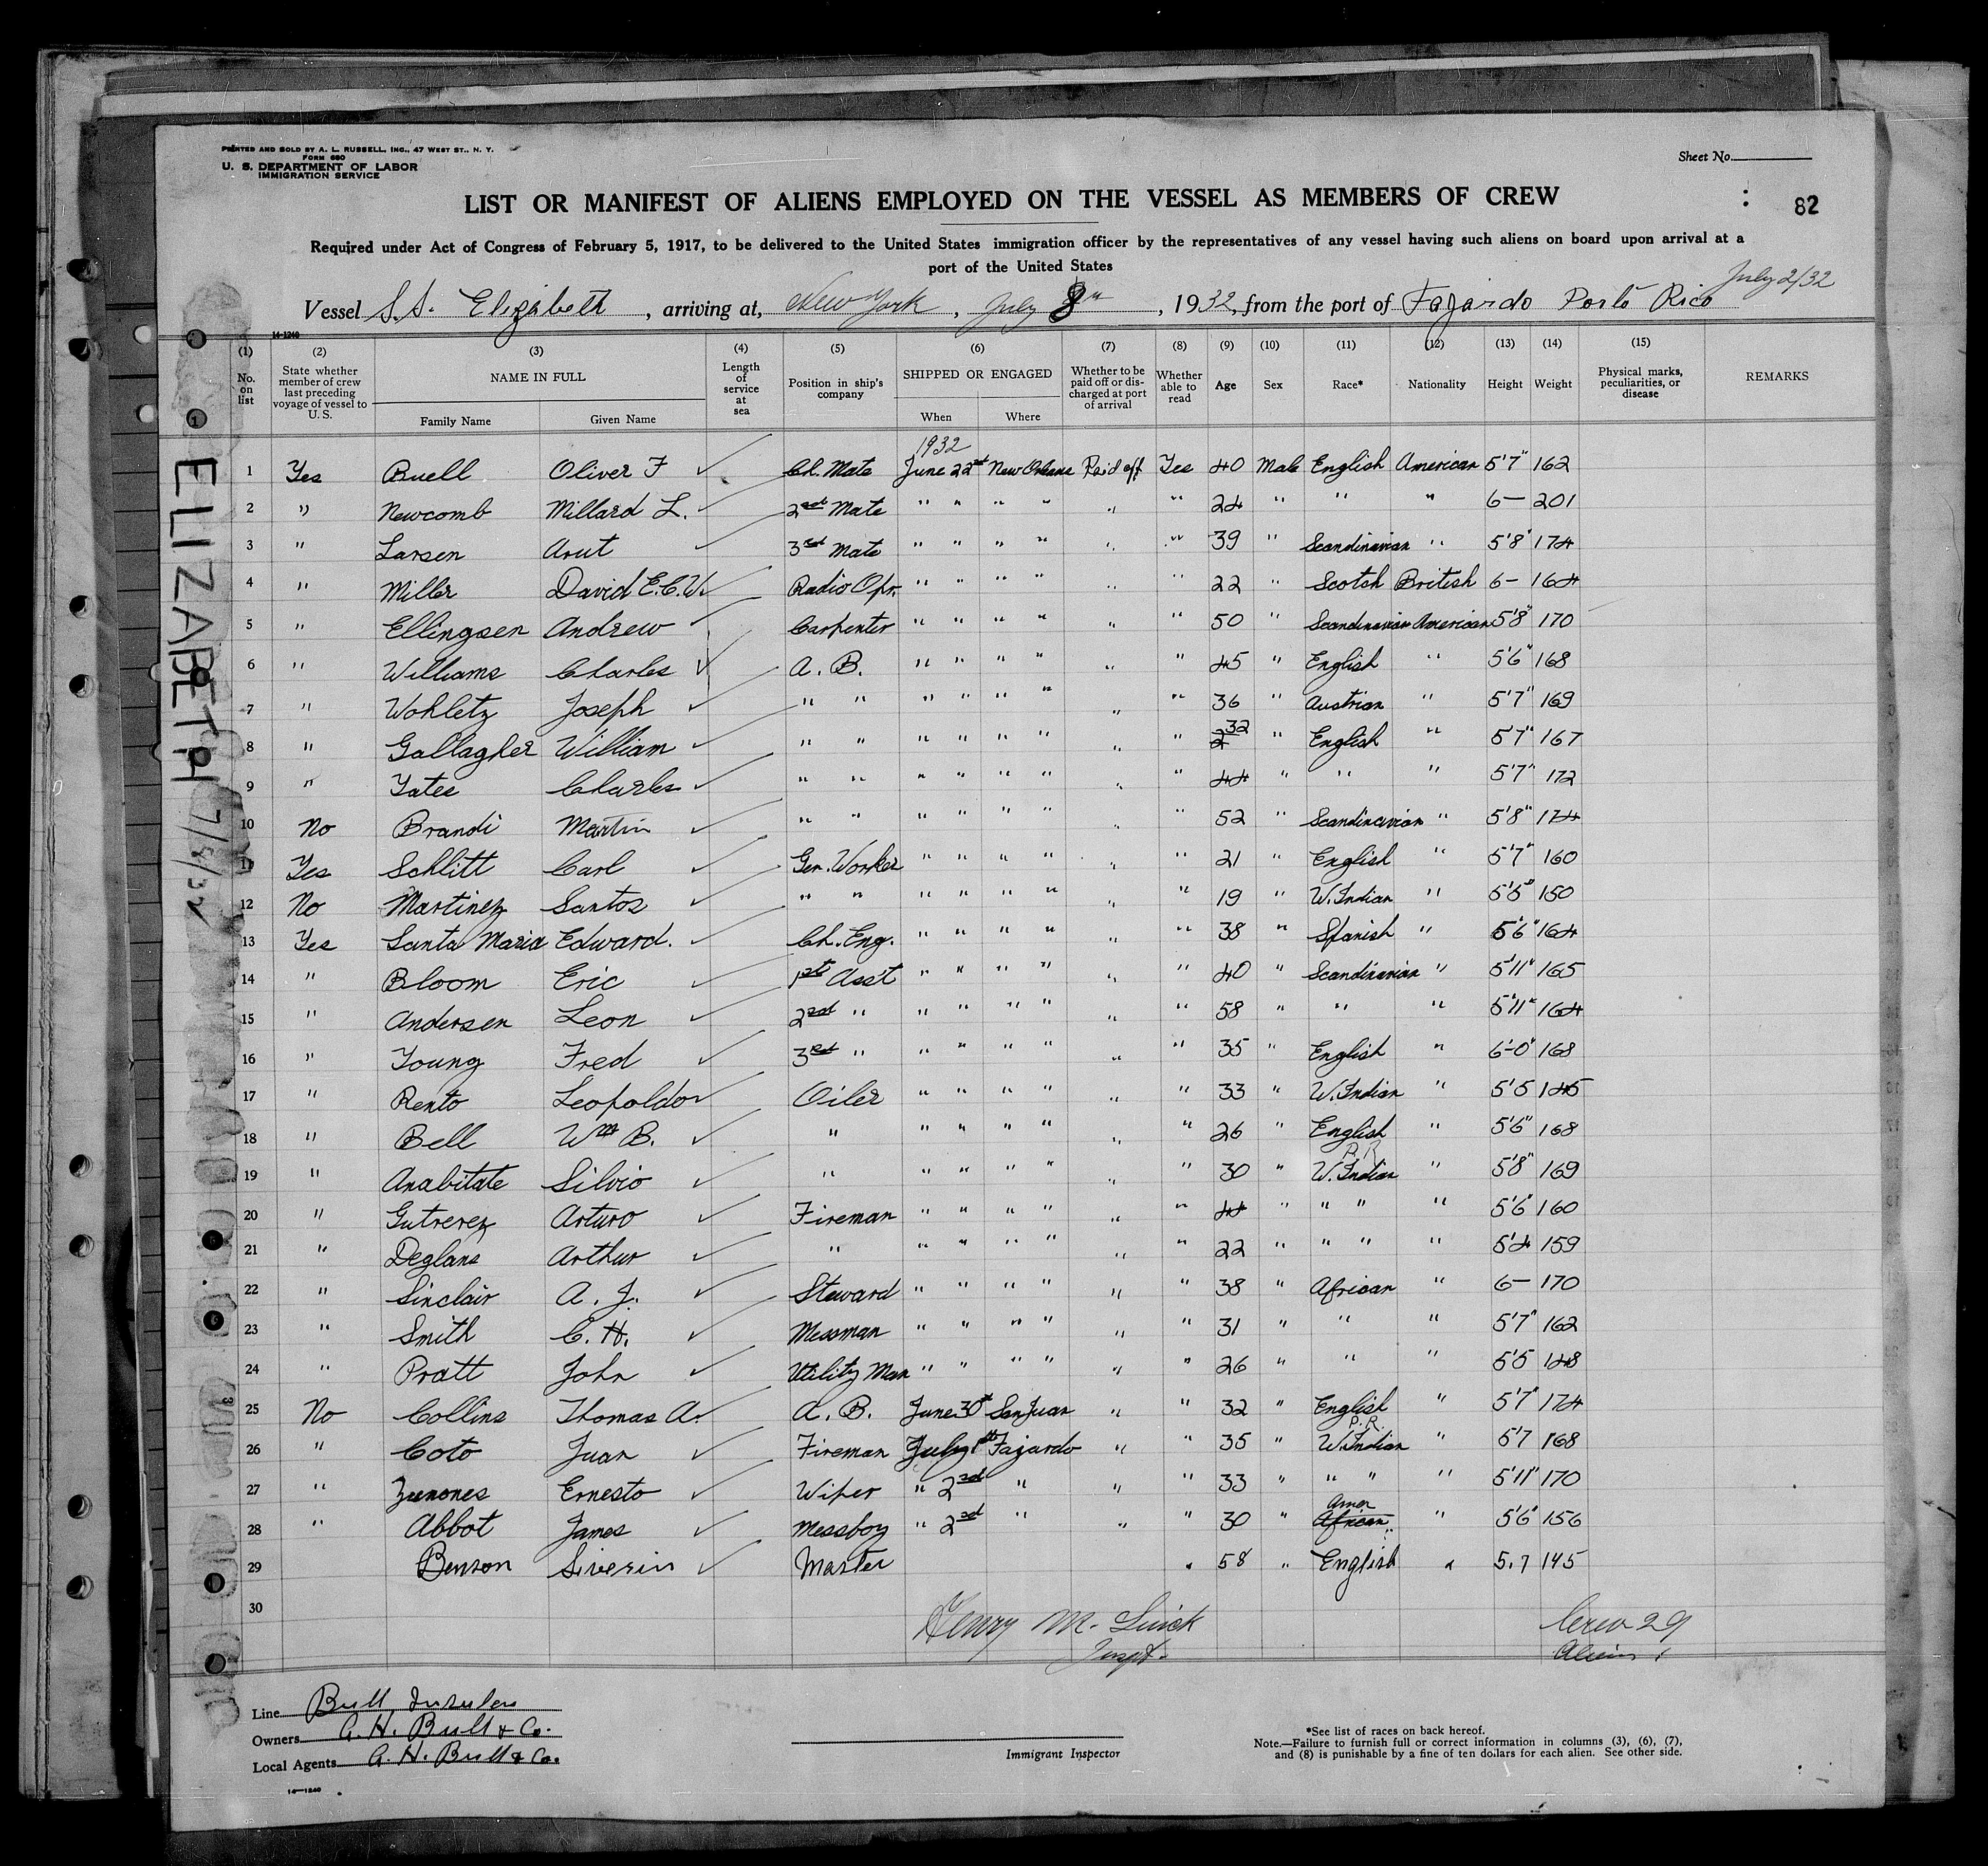 PRINTED AND SOLD BY A. L. RUSSELL, INC., 47 WEST ST., N. Y.
FORM 680
U. S. DEPARTMENT OF LABOR
IMMIGRATION SERVICE
Sheet No.
LIST OR MANIFEST OF ALIENS EMPLOYED ON THE VESSEL AS MEMBERS OF CREW
82
Required under Act of Congress of February 5, 1917, to be delivered to the United States immigration officer by the representatives of any vessel having such aliens on board upon arrival at a
port of the United States
July 2/32
Vessel S.S. Elizabeth, arriving at, New York, July 8th, 1932, from the port of Fajardo Porto Rico
14-1240
(1) (2) (3) (4) (5) (6) (7) (8) (9) (10) (11) (12) (13) (14) (15)
No. on list State whether member of crew last preceding voyage of vessel to U. S. NAME IN FULL Family Name Given Name Length of service at sea Position in ship's company SHIPPED OR ENGAGED When Where Whether to be paid off or discharged at port of arrival Whether able to read Age Sex Race* Nationality Height Weight Physical marks, peculiarities, or disease REMARKS
1932
1 Yes Buell Oliver F ✓ Ch. Mate June 22nd New Orleans Paid off Yes 40 Male English American 5'7" 162
2 " Newcomb Millard L. ✓ 2nd Mate " " " " " " 24 " " " 6— 201
3 " Larsen Arut ✓ 3rd Mate " " " " " " 39 " Scandinavian " 5'8" 174
4 " Miller David E.C.W. ✓ Radio Opr. " " " " " " 22 " Scotch British 6— 164
5 " Ellingsen Andrew ✓ Carpenter " " " " " " 50 " Scandinavian American 5'8" 170
6 " Williams Charles ✓ A. B. " " " " " " 45 " English " 5'6" 168
7 " Wohletz Joseph ✓ " " " " " " " " 36 " Austrian " 5'7" 169
8 " Gallagher William ✓ " " " " " " " " 32 " English " 5'7" 167
9 " Yates Charles ✓ " " " " " " " " 44 " " " 5'7" 172
10 No Brandi Martin ✓ " " " " " " " " 52 " Scandinavian " 5'8" 174
11 Yes Schlitt Carl ✓ Gen. Worker " " " " " " 21 " English " 5'7" 160
12 No Martinez Santos ✓ " " " " " " " " 19 " W. Indian " 5'5" 150
13 Yes Santa Maria Edward. ✓ Ch. Eng. " " " " " " 38 " Spanish " 5'6" 164
14 " Bloom Eric ✓ 1st Ass't " " " " " " 40 " Scandinavian " 5'11" 165
15 " Andersen Leon ✓ 2nd " " " " " " " 58 " " " 5'11" 164
16 " Young Fred ✓ 3rd " " " " " " " 35 " English " 6'-0" 168
17 " Rento Leopoldo ✓ Oiler " " " " " " 33 " W. Indian " 5'5 145
18 " Bell Wm B. ✓ " " " " " " " 26 " English " 5'6" 168
P.R.
19 " Anabitate Silvio ✓ " " " " " " " 30 " W. Indian " 5'8" 169
20 " Gutrerez Arturo ✓ Fireman " " " " " " 44 " " " " 5'6" 160
21 " Deglans Arthur ✓ " " " " " " " 22 " " " " 5'4 159
22 " Sinclair A. J. ✓ Steward " " " " " " 38 " African " 6— 170
23 " Smith C. H. ✓ Messman " " " " " " 31 " " " 5'7" 162
24 " Pratt John ✓ Utility Man " " " " " " 26 " " " 5'5 148
25 No Collins Thomas A. ✓ A. B. June 30th San Juan " " 32 " English " 5'7" 174
P.R.
26 " Coto Juan ✓ Fireman July 1st Fajardo " " 35 " W. Indian " 5'7 168
27 " Zunones Ernesto ✓ Wiper " 2nd " " " 33 " " " " 5'11" 170
Amer
28 " Abbot James ✓ Messboy " 2nd " " " 30 " African " 5'6" 156
29 Benson Siverin ✓ Master " 58 " English " 5.7 145
30
Henry M.
Inspt.
Crew 29
Aliens 1
ELIZABETH 7/8/32
Line Bull Insular
Owners A. H. Bull & Co.
Local Agents A. H. Bull & Co.
14—1240
Immigrant Inspector
*See list of races on back hereof.
Note.—Failure to furnish full or correct information in columns (3), (6), (7),
and (8) is punishable by a fine of ten dollars for each alien. See other side.